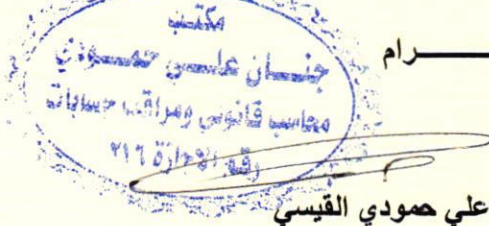 مكتب
جنــان علــي حمــودي
محاسب قانوني ومراقب حسابات
رقم الاجازة ٢١٦
ـــــرام
علي حمودي القيسي